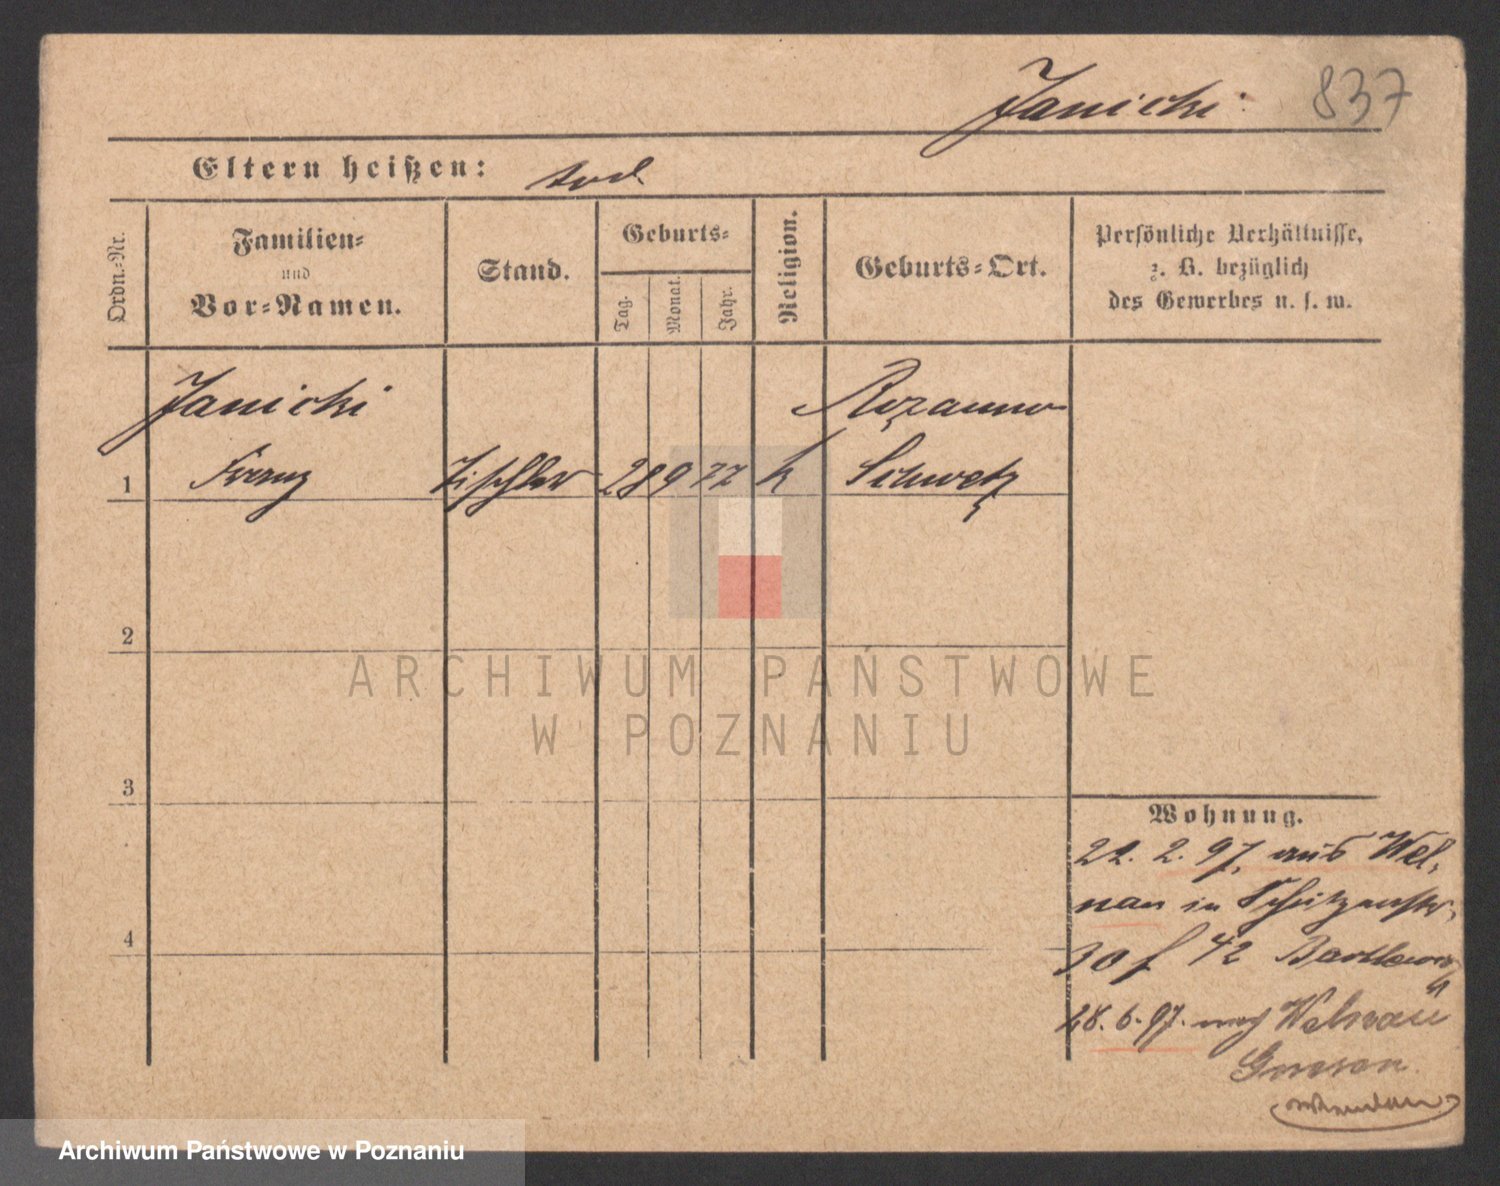 Janicki
837
Eltern heißen: tod
Ordn.-Nr.
Familien-
und
Vor-Namen.
Stand.
Geburts-
Tag.
Monat.
Jahr.
Religion.
Geburts-Ort.
Persönliche Verhältnisse,
z. B. bezüglich
des Gewerbes u. s. w.
Janicki
Rozanno
1 Franz Tischler 28 9 77 k Schwetz
2
ARCHIWUM PAŃSTWOWE
W POZNANIU
3
Wohnung.
22. 2. 97, aus Wel-
nau in Schützenstr.
4
30 f 42
28. 6. 97. nach Welnau
Gnesen
Archiwum Państwowe w Poznaniu